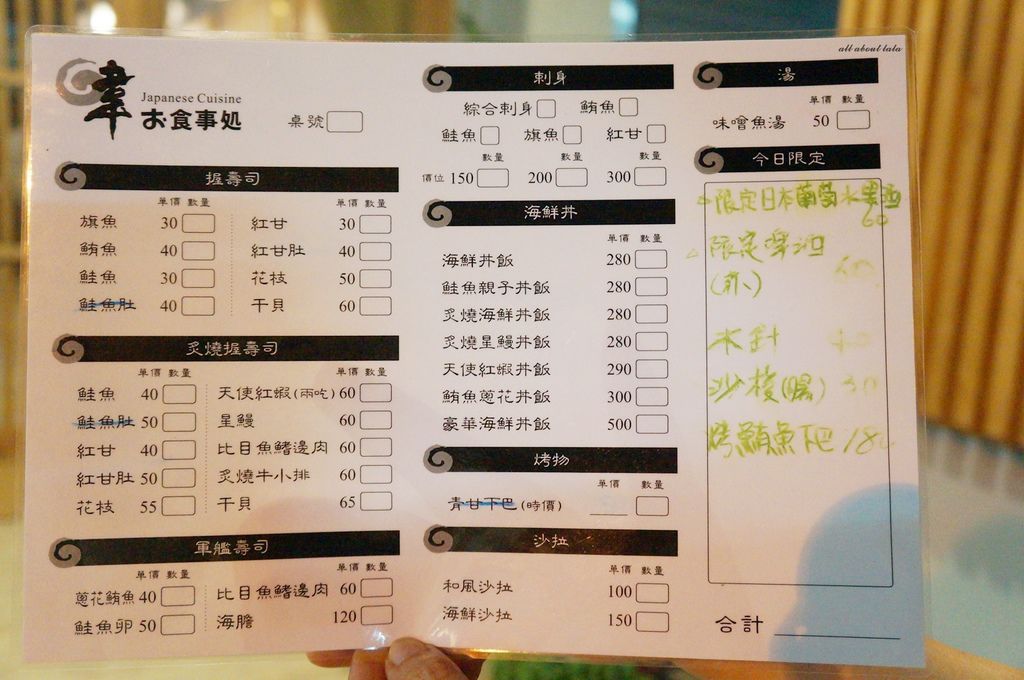 all about lala
韋
Japanese Cuisine
お食事処
桌號
握壽司
單價 數量 單價 數量
旗魚 30 紅甘 30
鮪魚 40 紅甘肚 40
鮭魚 30 花枝 50
鮭魚肚 40 干貝 60
炙燒握壽司
單價 數量 單價 數量
鮭魚 40 天使紅蝦(兩吃) 60
鮭魚肚 50 星鰻 60
紅甘 40 比目魚鰭邊肉 60
紅甘肚 50 炙燒牛小排 60
花枝 55 干貝 65
軍艦壽司
單價 數量 單價 數量
蔥花鮪魚 40 比目魚鰭邊肉 60
鮭魚卵 50 海膽 120
刺身
綜合刺身 鮪魚
鮭魚 旗魚 紅甘
數量 數量 數量
價位 150 200 300
海鮮丼
單價 數量
海鮮丼飯 280
鮭魚親子丼飯 280
炙燒海鮮丼飯 280
炙燒星鰻丼飯 280
天使紅蝦丼飯 290
鮪魚蔥花丼飯 300
豪華海鮮丼飯 500
烤物
單價 數量
青甘下巴(時價)
沙拉
單價 數量
和風沙拉 100
海鮮沙拉 150
湯
單價 數量
味噌魚湯 50
今日限定
限定日本葡萄水果酒
60
限定
水針
沙梭 30
烤鮪魚下巴 180
合計